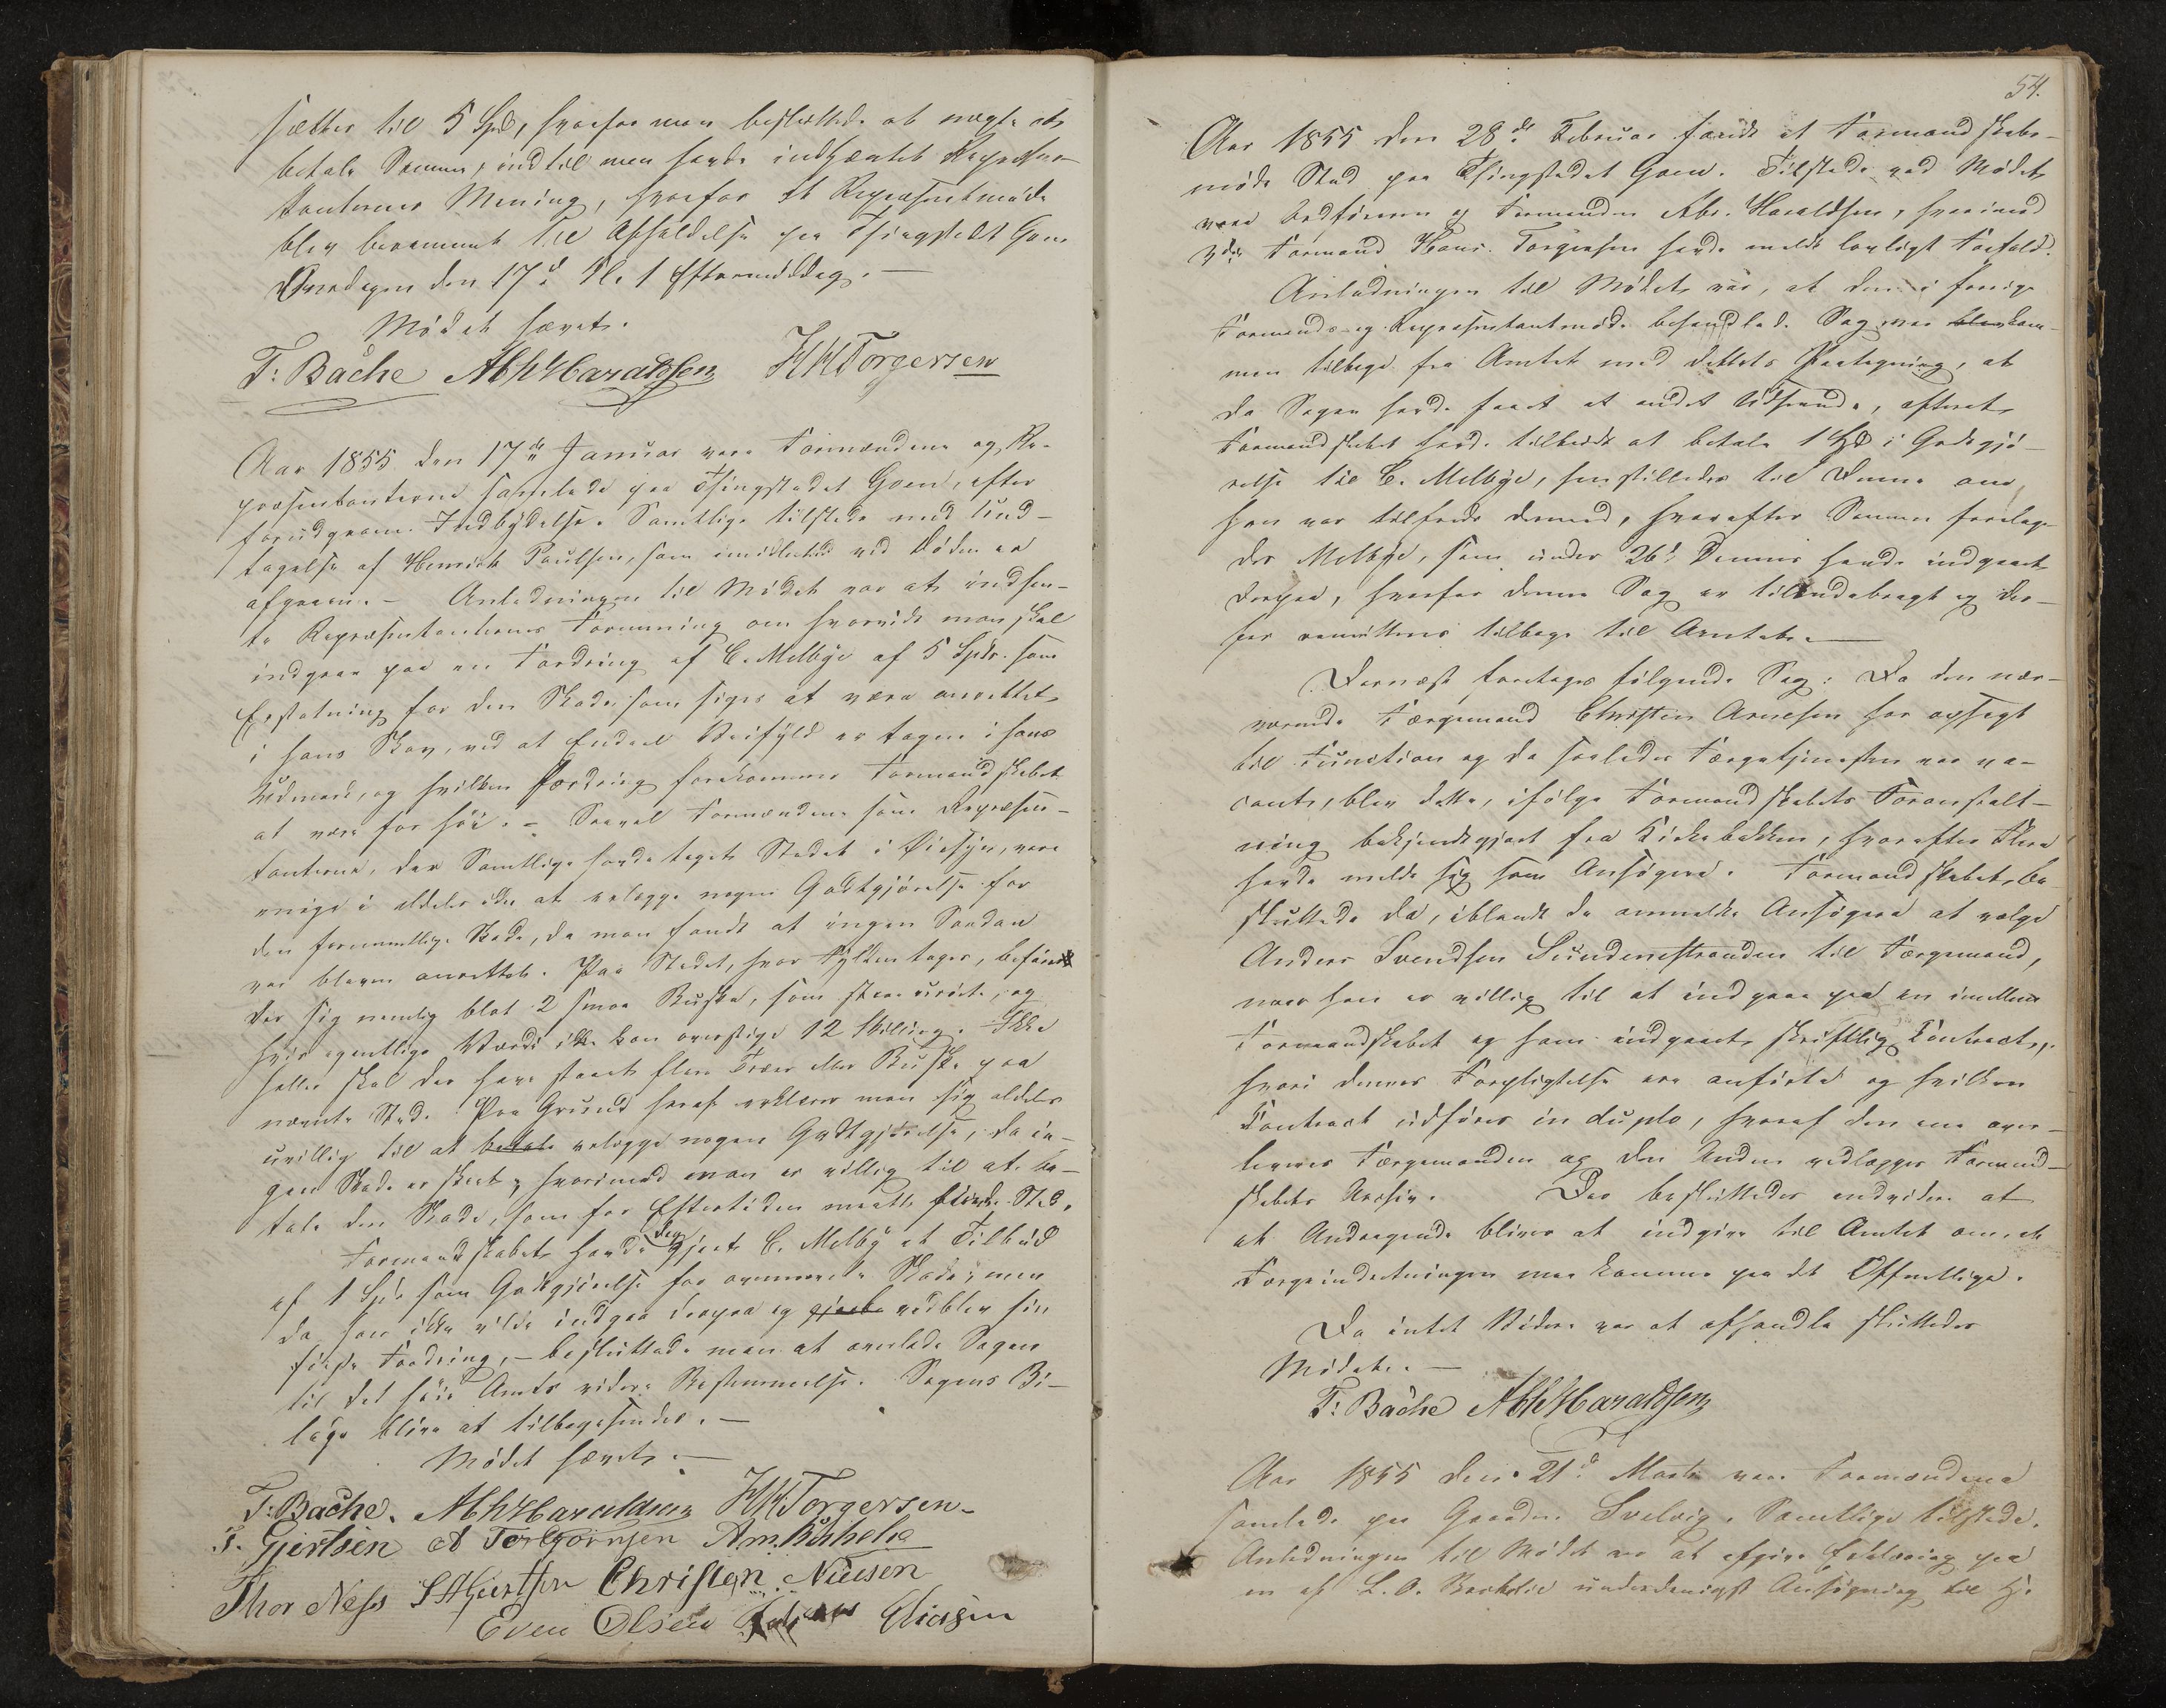 sættes til 5 Spd, hvorfor man besluttede at nægte at
betale Summen, indtil man havde indhæntet Repræsen-
tanternes Mening, hvorfor et Repræsentmøde
blev berammet til Afholdelse paa Thingstedet Goen
Onsdagen den 17d Kl. 1 Eftermiddag. —
Mødet hævet.
F: Bache Abr Haraldsen HH Torgersen
Aar 1855 den 17de Januar vare Formændene og Re-
præsentanterne samlede paa Thingstedet Goen, efter
forudgaaen Indbydelse. Samtlige tilstede med Und-
tagelse af Henrich Paulsen, som imidlertid ved Døden er
afgaaen. — Anledningen til Mødet var at indhen-
te Repræsentanternes Formening om hvorvidt man skal
indgaae paa en Fordring af C. Melbye af 5 Spdr. som
Erstatning for den Skade som siges at være anrettet
i hans Skov, ved at Endeel Veifyld er tagen i hans
Udmark, og hvilken Fordring forekommer Formandskabet
at være for høi. — Saavel Formændene som Repræsen-
tanterne, der Samtlige havde taget Stedet i Øiesyn, vare
enige i aldeles ikke at erlægge nogen Godtgjørelse for
den formentlige Skade, da man fandt at ingen Saadan
var bleven anrettet. Paa Stedet, hvor Fylden tages, befandt
der sig nemlig blot 2 smaa Buske, som staae urørte, og
hvis egentlige Værdi ikke kan overstige 12 Skilling. Ikke
heller skal der have staaet flere Træer eller Buske paa
nævnte Sted. Paa Grund heraf erklærer man sig aldeles
uvillig til at betale erlægge nogen Godtgjørelse, da in-
gen Skade er skeet, hvorimod man er villig til at be-
tale den Skade, som for Eftertiden maatte finde Sted.
Formandskabet havde dog gjort C. Melby et Tilbud
af 1 Spd. som Godtgjørelse for ovennævnte Skade; men
da han ikke vilde indgaa derpaa og gjorde vedblev sin
første Fordring, — besluttede man at overlade Sagen
til det høie Amts videre Bestemmelse. Sagens Bi-
lage blive at tilbagesendes. —
Mødet hævet. —
F: Bache. Abr Haraldsen HH Torgersen-
Gjertsen A Torbjørnsen
Thor Næss Gjertsen Christen Nielsen
Even Olsen Eliasen
54.
Aar 1855 den 28de Februar fandt et Formandskabs-
møde Sted paa Thingstedet Goen. Tilstede ved Mødet
vare Ordføreren og Formanden Abr. Haraldsen, hvorimod
3die Formand Hans Torgersen havde meldt lovligt Forfald.
Anledningen til Mødet var, at den i forrige
Formands- og Repræsentantmøde behandlede Sag var blev kom-
men tilbage fra Amtet med dettets Paategning, at
da Sagen havde faaet et andet Udseende, efterat
Formandskabet havde tilbudt at betale 1 Spd i Godtgjø-
relse til C. Melbye, henstilledes til Denne om
han var tilfreds dermed, hvorefter Samme forelag-
des Melbye, som under 26d Dennes havde indgaaet
derpaa, hvorfor denne Sag er tilendebragt og der-
for remitteres tilbage til Amtet. —
Dernæst foretoges følgende Sag: Da den nær-
værende Færgemand Christen Arnesen har opsagt
sin Function og da saaledes Færgetjenesten var va-
cant, blev dette, ifølge Formandskabets Foranstalt-
ning bekjendtgjort fra Kirkebakken, hvorefter Flere
havde meldt sig som Ansøgere. Formandskabet be-
sluttede da, iblandt de anmeldte Ansøgere at vælge
Anders Svendsen Sundenestranden til Færgemand,
naar han er villig til at indgaae paa en imellem
Formandskabet og ham indgaaet skriftlig Contract,
hvori dennes Forpligtelse ere anførte og hvilken
Contract udføres in duplo, hvoraf den ene over-
leveres Færgemanden og den Anden vedlægges Formand-
skabets Archiv. Der besluttedes endvidere at
et Andragende bliver at indgive til Amtet om, at
Færgeindretningen maa komme paa det Offentlige.
Da intet Videre var at afhandle sluttedes
Mødet. —
F: Bache Abr Haraldsen
Aar 1855 den 21d Marts vare Formændene
samlede paa Gaarden Svelvig. Samtlige tilstede.
Anledningen til Mødet var at afgive Erklæring paa
en af L. O. underdanigst Ansøgning til H.